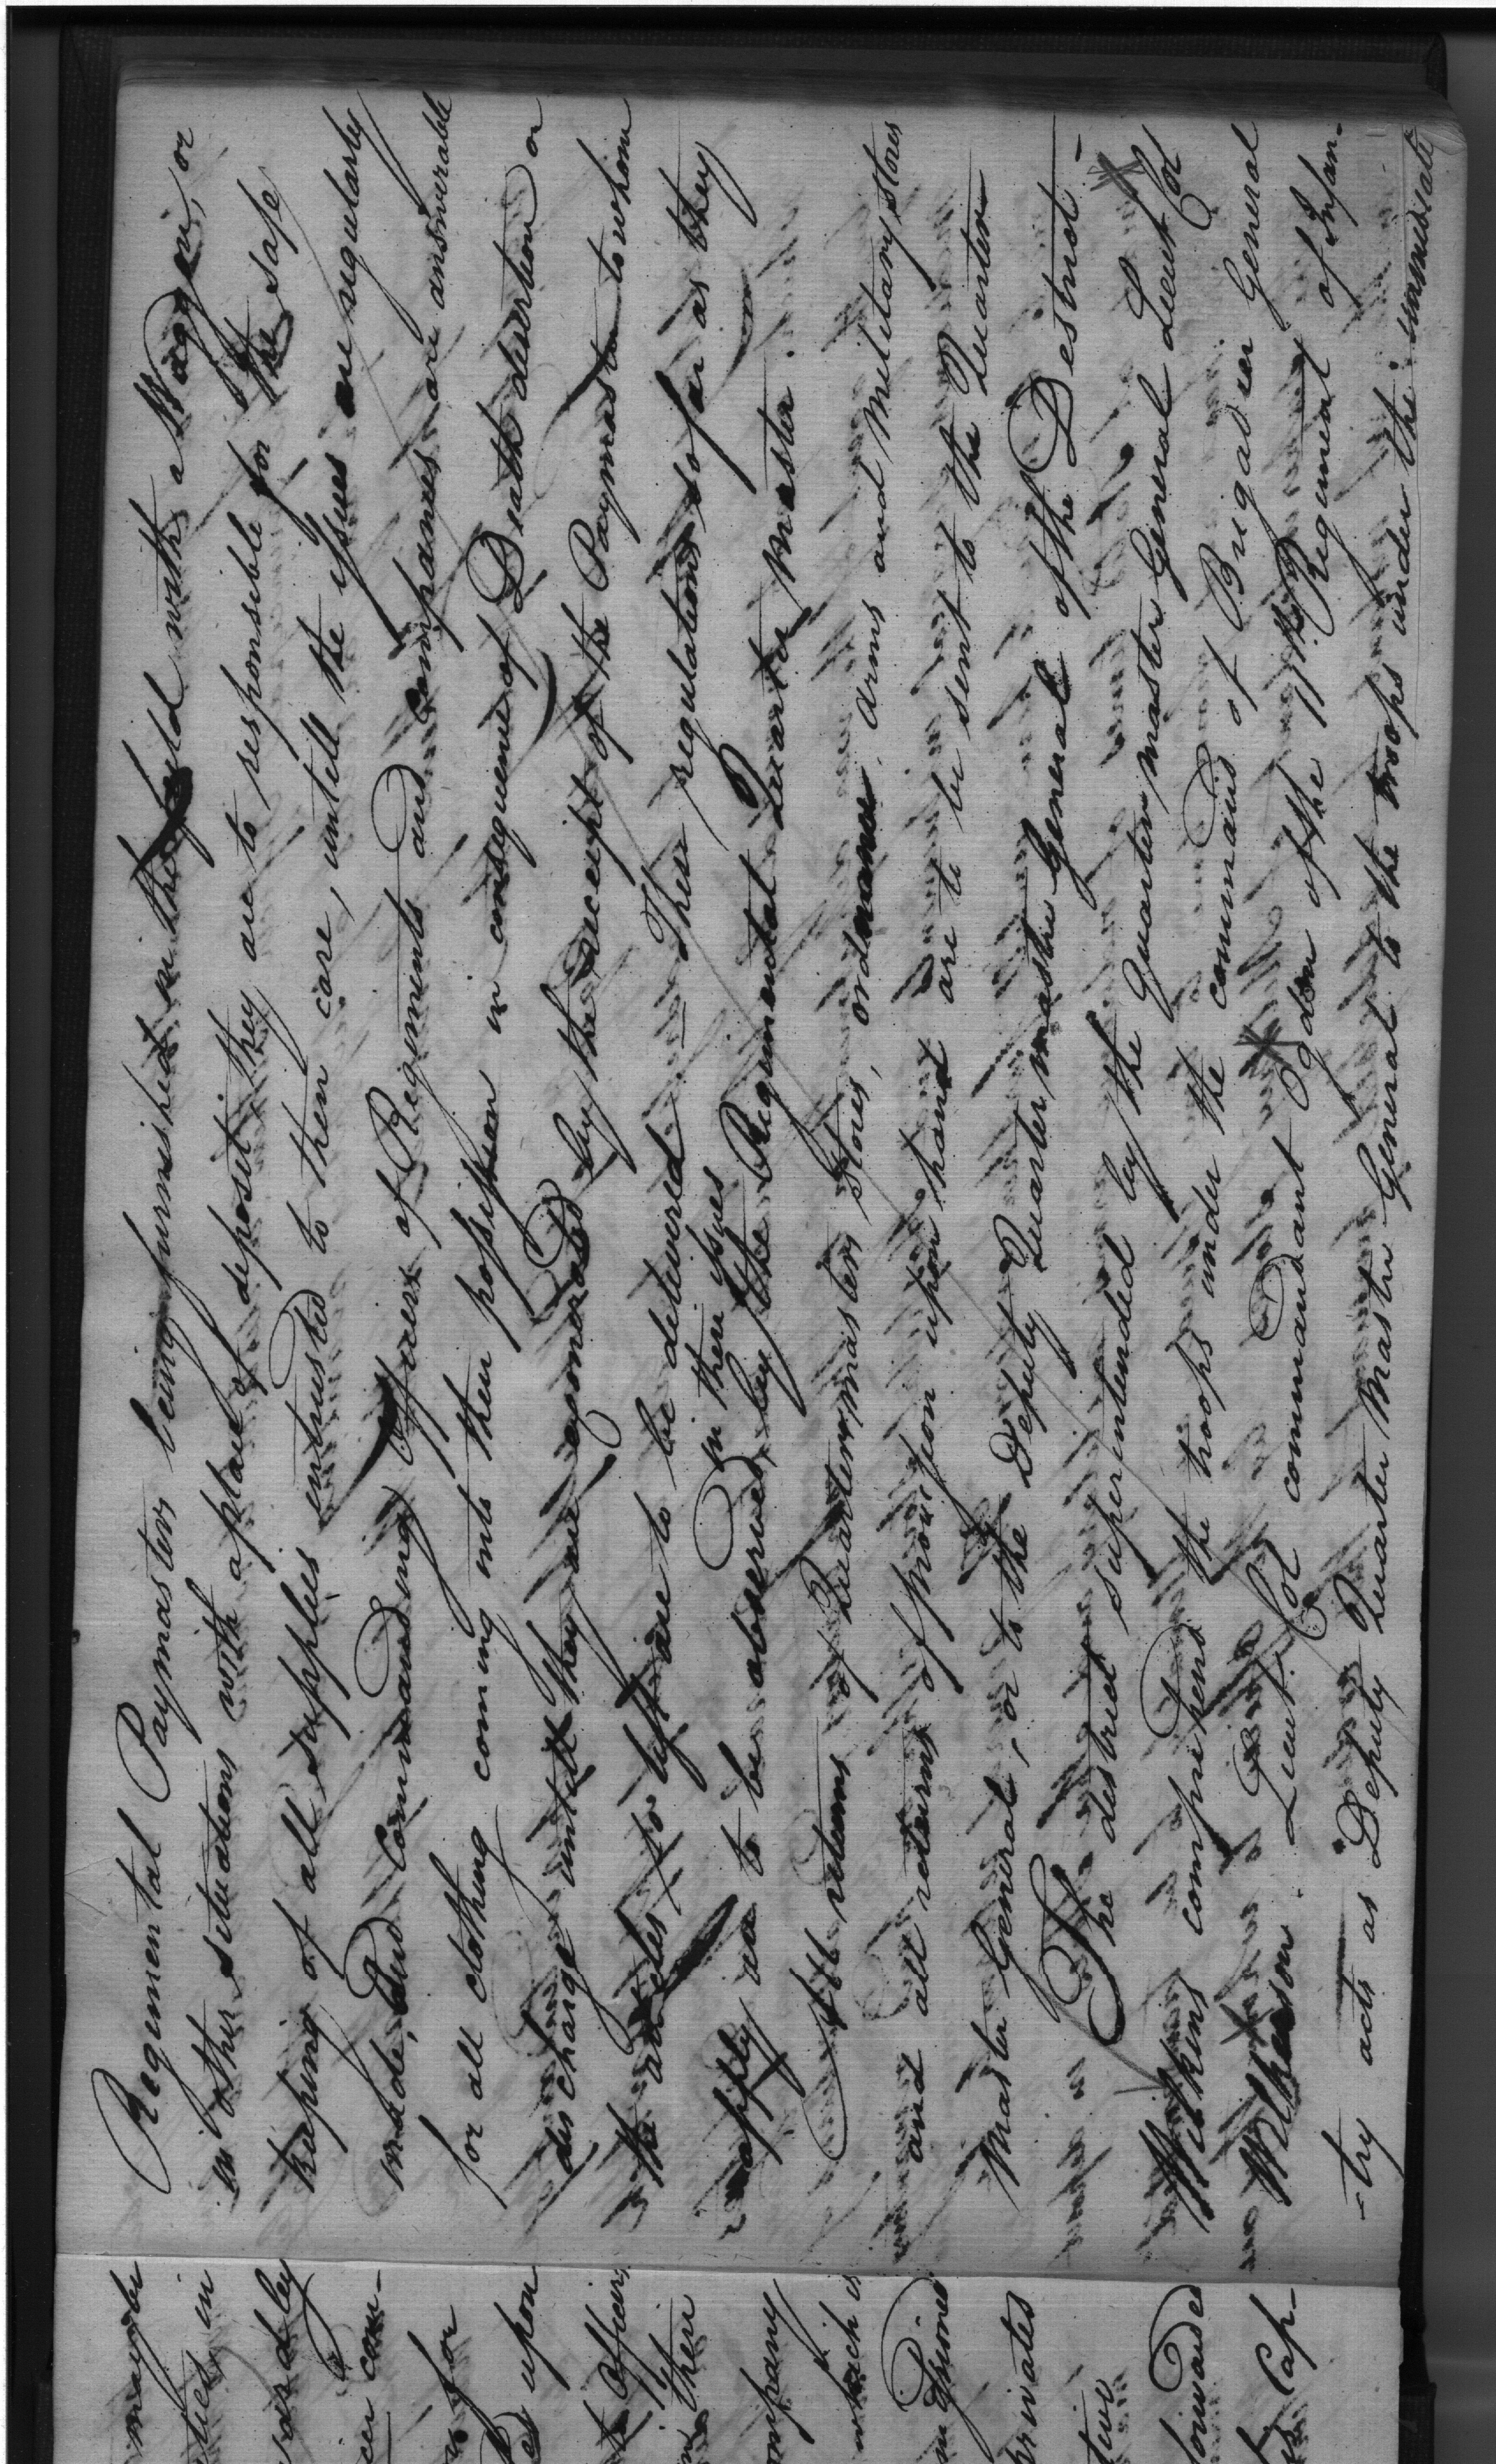 Regimental Paymasters being furnished in the field with a Waggon, or
in other situations with a place of deposit, they are to responsible for the safe
keeping of all supplies intrusted to their care, untill the issues are regularly
made, and Commanding Officers of Regiments and Companies are answerable
for all clothing coming into their possession in consequence of Death desertion or
discharge untill they are exonerated by the receipt of the Paymaster to whom
the articles so left are to be delivered. These regulations so far as they
in their issues
apply are to be observed, by the Regimental Quarter Master.
All returns of Quartermasters Stores, ordnance, arms and Military Stores
and all returns of provision upon hand are to be sent to the Quarter
Master General, or to the Deputy Quartermaster General of the District -
The district superintended by the Quartermaster General Lieut Col
Wilkins comprehend the troops under the command of Brigadier General
Wilkinson. Lieut. Col commandant Ogden of the Regiment of Infan-
-try acts as Deputy Quarter Master General to the troops under the immediate
may be
in
and by
con-
for
upon
Officers,
their
company
which is
privates
Cap-